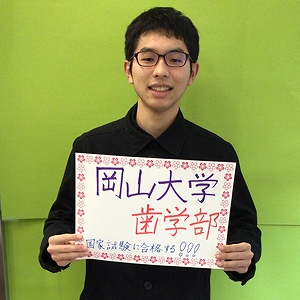 岡山大学
歯学部
国家試験に合格する!!!